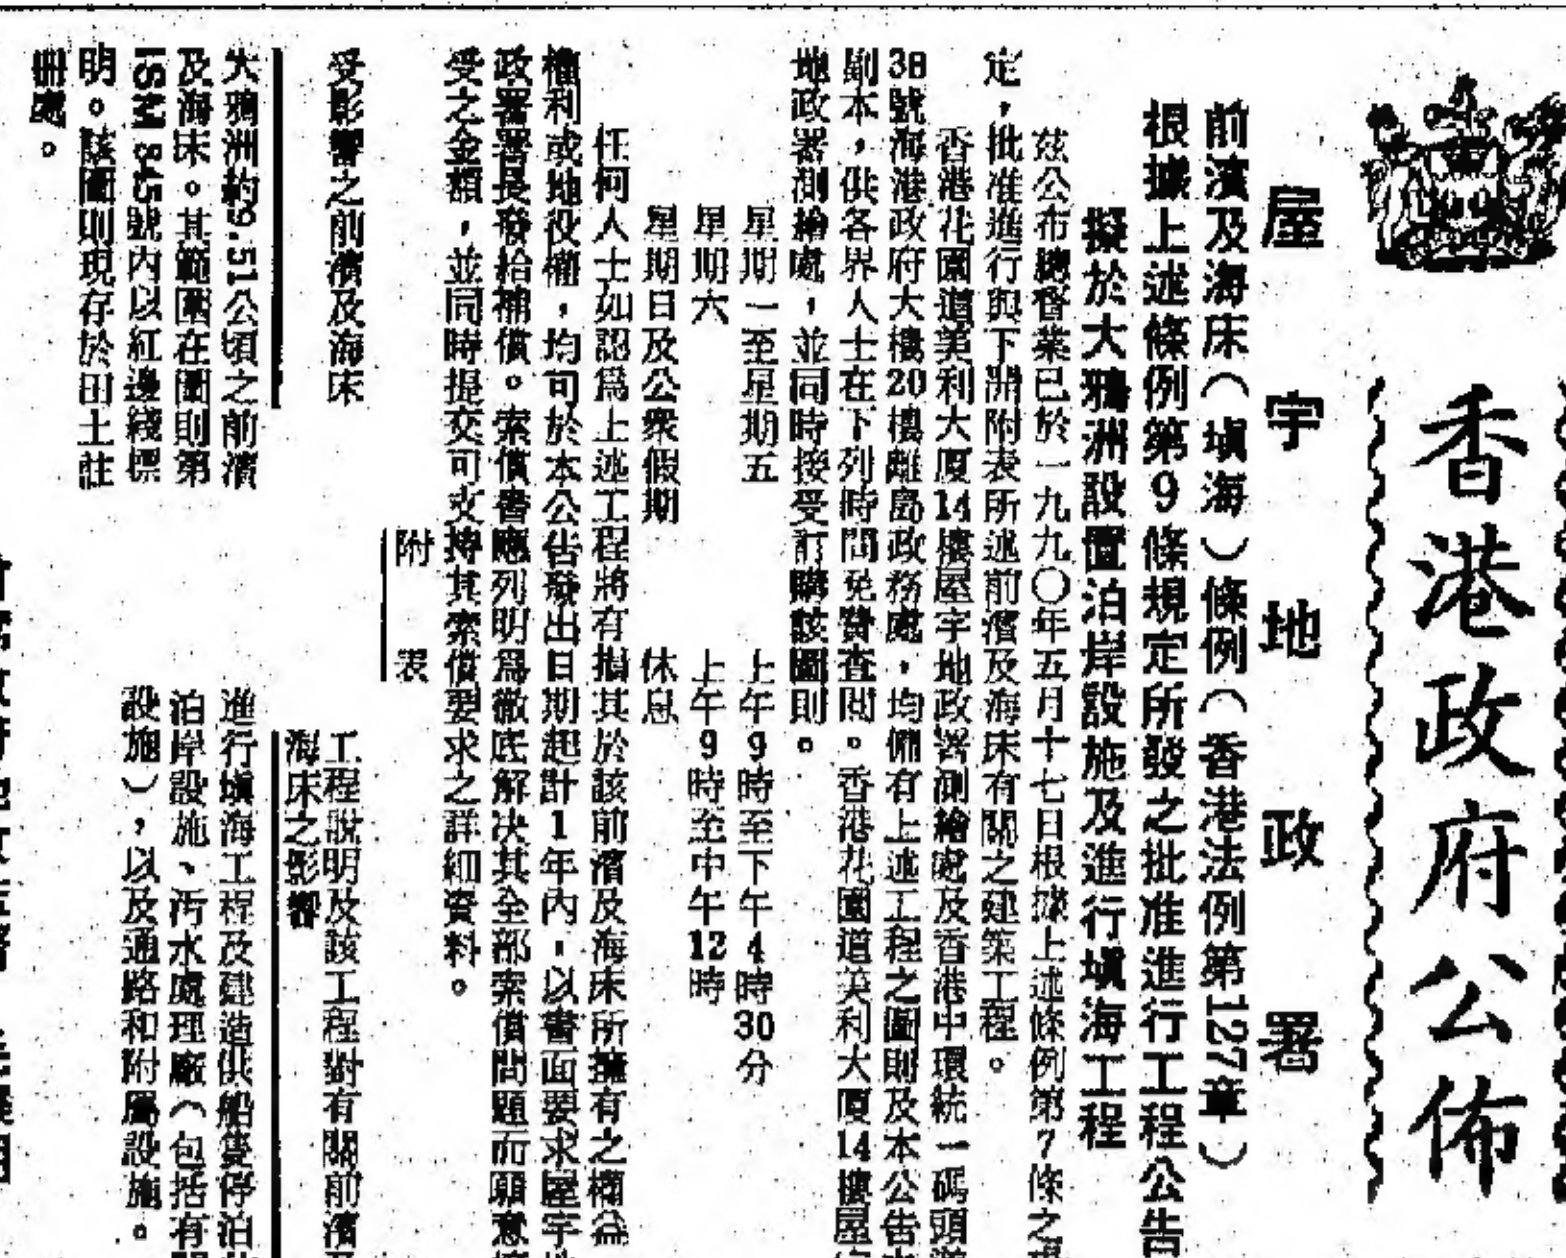 香港政府公佈
屋宇地政署
前濱及海床（塡海）條例（香港法例第127章）
根據上述條例第9條規定所發之批准進行工程公告
擬於大鴉洲設置泊岸設施及進行塡海工程
茲公布總督業已於一九九〇年五月十七日根據上述條例第7條之規
定，批准進行與下開附表所述前濱及海床有關之建築工程。
香港花園道美利大厦14樓屋宇地政署測繪處及香港中環統一碼頭道
38號海港政府大樓20樓離島政務處，均備有上述工程之圖則及本公告
副本，供各界人士在下列時間免費查閱。香港花園道美利大厦14樓屋
地政署測繪處，並同時接受訂購該圖則。
星期一至星期五 上午9時至下午4時30分
星期六 上午9時至中午12時
星期日及公衆假期 休息
任何人士如認爲上述工程將有損其於該前濱及海床所擁有之權益
權利或地役權，均可於本公告發出日期起計1年內，以書面要求屋宇地
政署署長發給補償。索償書應列明爲徹底解决其全部索償問題而願意接
受之金額，並同時提交可支持其索償要求之詳細資料。
附表
受影響之前濱及海床
工程說明及該工程對有關前濱及
海床之影響
大鴉洲約9.51公頃之前濱
及海床。其範圍在圖則第
ISM 845號內以紅邊綫標
明。該圖則現存於田土註
册處。
進行塡海工程及建造供船隻停泊
泊岸設施、污水處理廠（包括有關
設施），以及通路和附屬設施。